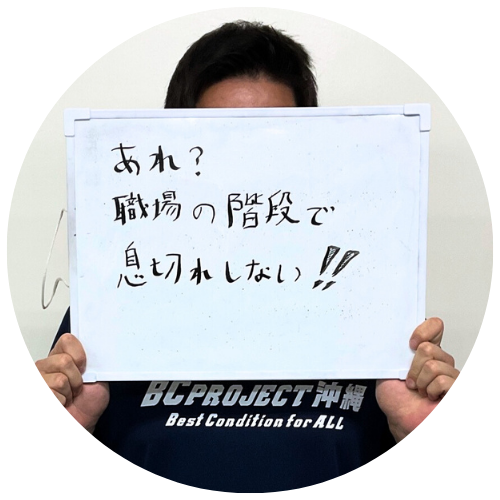 あれ?
職場の階段で
息切れしない!!
BCPROJECT沖縄
Best Condition for ALL